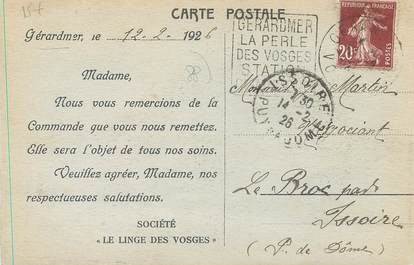 15f
CARTE POSTALE
Gérardmer, le 12-2- 1926
Madame,
Nous vous remercions de la
Commande que vous nous remettez.
Elle sera l'objet de tous nos soins.
Veuillez agréer, Madame, nos
respectueuses salutations.
SOCIÉTÉ
"LE LINGE DES VOSGES"
GÉRARDMER
LA PERLE
DES VOSGES
STATION
20c
ISSOIRE
14 -2
26
PUY DE DOME
Martin
Négociant
Le Broc par
Issoire
(P. de Dôme)